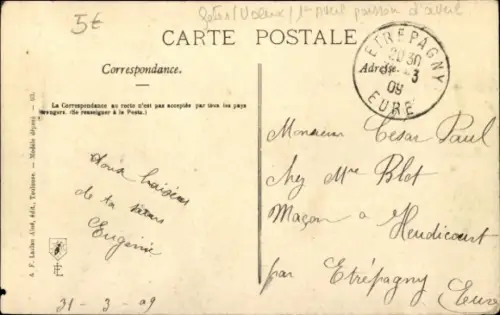 5€
fêtes/Voeux/1er avril poisson d'avril
CARTE POSTALE
Correspondance.
Adresse
La Correspondance au recto n'est pas acceptée par tous les pays
étrangers. (Se renseigner à la Poste.)
ETREPAGNY
20 30
31-3
09
EURE
doux baisers
de ta sœur
Eugénie
31-3-09
Monsieur Cesar Paul
chez Mr Blot
Maçon à Heudicourt
par Etrépagny
Eure
A. F. Ladlen Aîné, édit., Toulouse. - Modèle déposé